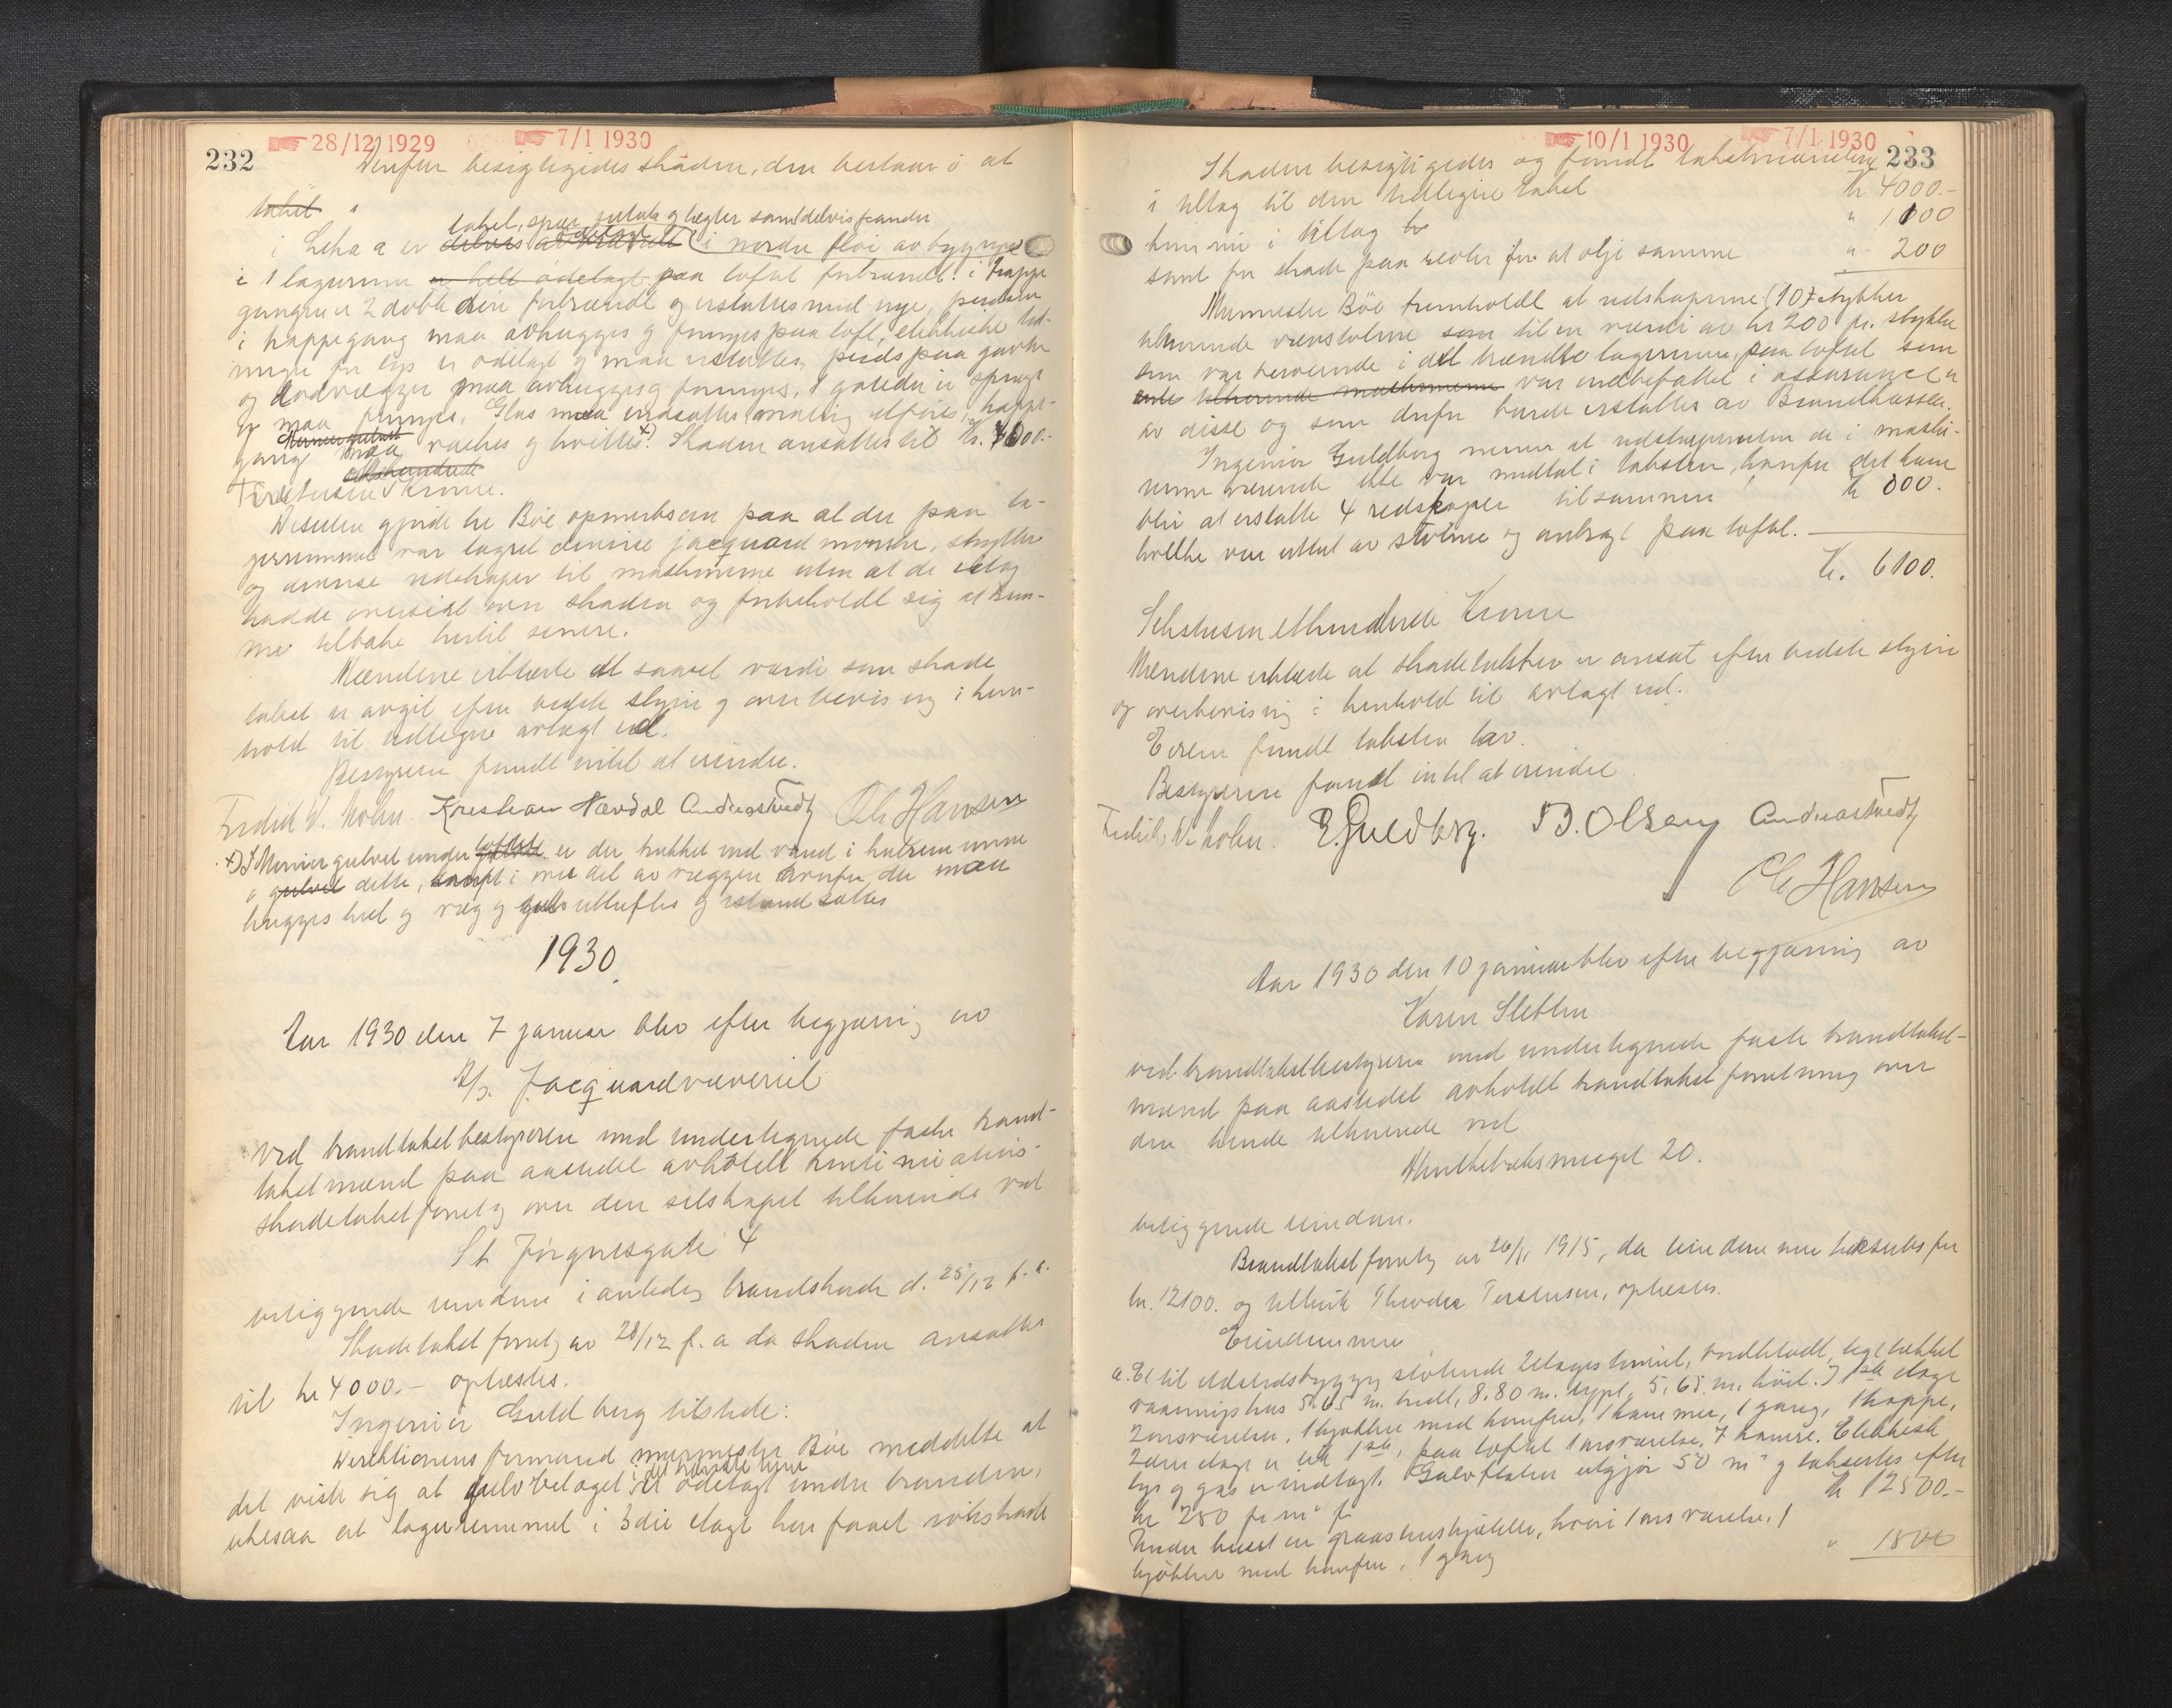 28/12 1929 7/1 1930
232
Derefter besigtigedes skaden, den bestaar i at
taket
taket, sper, gulvtak og lægter som delvis
i Litra a er delvis i nordre fløi av bygningen
i 1 lagerrum er helt ødelagt paa loftet forbrændt. i trappe
gangen er 2 doble døre forbrændt og erstattes med nye, pudsen
i trappegang maa avhugges og fornyes paa loft, elektriske led-
ninger for lys er ødelagt og maa erstattes, puds paa gavle
og lodvægger maa avhugges og fornyes, 1 gatedør er sprengt
og maa fornyes, Glas maa indsættes maling utføres, trappe-
gang maa raskes og hvittes x). Skaden ansættes til Kr. 4000.-
Firetusen Kroner.
Desuten gjorde hr Bøe opmerksom paa at der paa la-
gerrummet var lagret diverse jacquard mønstre, skytler
og diverse redskaper til maskinerne uten at de idag
hadde oversikt over skaden og forbeholdt sig at kom-
me tilbake hertil senere.
Mændene erklærte at saavel værdi som skade
takst er avgit efter bedste skjøn og overbevisning i hen-
hold til tidligere avlagt ed.
Bestyreren fandt intet at erindre.
Fredrik W. Holm. Kristian Nævdal Andreas Tvedt Ole Hansen
x) I Monier gulvet under loftet er der trukket ind vand i hulrummene
i gulvet dette, i øvre del av væggen hvorfor der maa
hugges hul og væg og gulv utluftes og istandsættes
1930.
Aar 1930 den 7 januar blev efter begjæring av
A/s. Jacquardvæveriet
ved brandtakstbestyreren med undertegnede faste brand-
takstmænd paa aastedet avholdt kontinuations-
skadetakstforretn over den selskapet tilhørende ved
St Jørgensgate 4
beliggende eiendom i anledn brandskade d. 25/12 f.a.
Skadetakstforretn av 28/12 f.a da skaden ansattes
til kr 4000.- oplæstes.
Ingeniør Guldberg tilstede:
Direktionens formand murmester Bøe meddelte at
det viste sig at gulvbelaget i det brændte rum er ødelagt under branden,
likesaa at lagerrummet i 3die etage har faaet vandskade
10/1 1930 7/1 1930
233
Skaden besigtigedes og fandt takstmændene
i tillæg til den tidligere takst kr 4000.-
kunne i tillæg kr " 1100
samt for skade paa reoler for at olje samme " 200
Murmester Bøe fremholdt at redskaperne (107 stykker
tilhørende vævstolene som til en værdi av kr 200 pr. stykke
som var beroende i det brændte lagerrum, paa loftet som
tilhørende maskinerne var indbefattet i assurancen
av disse og som derfor burde erstattes av Brandkassen.
Ingeniør Guldberg mener at redskaperne uten de i maski-
nerne værende ikke var medtat i taksten, hvorfor det kun
blir at erstatte 4 redskaper tilsammen kr 800.
hvilke var uttat av stolene og anbragt paa loftet.
Kr. 6100.
Sekstusen ethundrede Kroner
Mændene erklærte at skadetaksten er ansat efter bedste skjøn
og overbevisning i henhold til avlagt ed.
Eieren fandt taksten lav.
Bestyreren fandt intet at erindre.
Fredrik W. Holm. E. Guldberg. B. Olsen Andreas Tvedt
Ole Hansen
Aar 1930 den 10 januar blev efter begjæring av
Karen Sletten
ved brandtakstbestyreren med undertegnede faste brandtakst-
mænd paa aastedet avholdt brandtakst forretning over
den hende tilhørende ved
Munkebæksmuget 20.
beliggende eiendom.
Brandtakst forretn av 26/11 1915, da eiendommen takseredes for
kr. 12100. og tilhørte Theodor Torstensen, oplæstes.
Eiendommen
a. Et til utstedsbygning støtende 2 etages tømret, bordklædt, tegltækket
vaaningshus 5.65 m. bredt, 8.80 m. dypt, 5,65 m. høit. I 1ste etage
2 ovsværelser, 1 kjøkken med komfur, 1 kammer, 1 gang, 1 trappe,
2den etage er lik 1ste, paa loftet 1 ovsværelse, 7 kamre. Elektrisk
lys og gas er indlagt. Gulvflaten utgjør 50 m² og takseres efter
kr 250 pr m² for kr 12500.-
Under huset en graastenskjelder, hvori 1 ovsværelse, 1
kjøkken med komfur, 1 gang " 1800